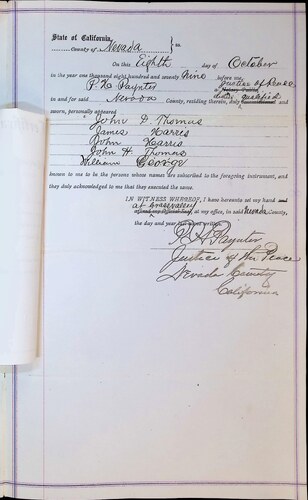 State of California, } ss
County of Nevada
On this Eighth day of October
in the year one thousand eight hundred and seventy Nine before me,
P. H. Paynter Justice of Peace
a Notary Public duly qualified
in and for said Nevada County, residing therein, duly commissioned and
sworn, personally appeared
John D Thomas
James Harris
John Harris
John H Thomas
William George
known to me to be the persons whose names are subscribed to the foregoing instrument, and
they duly acknowledged to me that they executed the same.
IN WITNESS WHEREOF, I have hereunto set my hand and
at Grass Valley
affixed my Official Seal, at my office, in said Nevada County,
the day and year last above written.
P. H. Paynter
Justice of the Peace
Nevada County
California